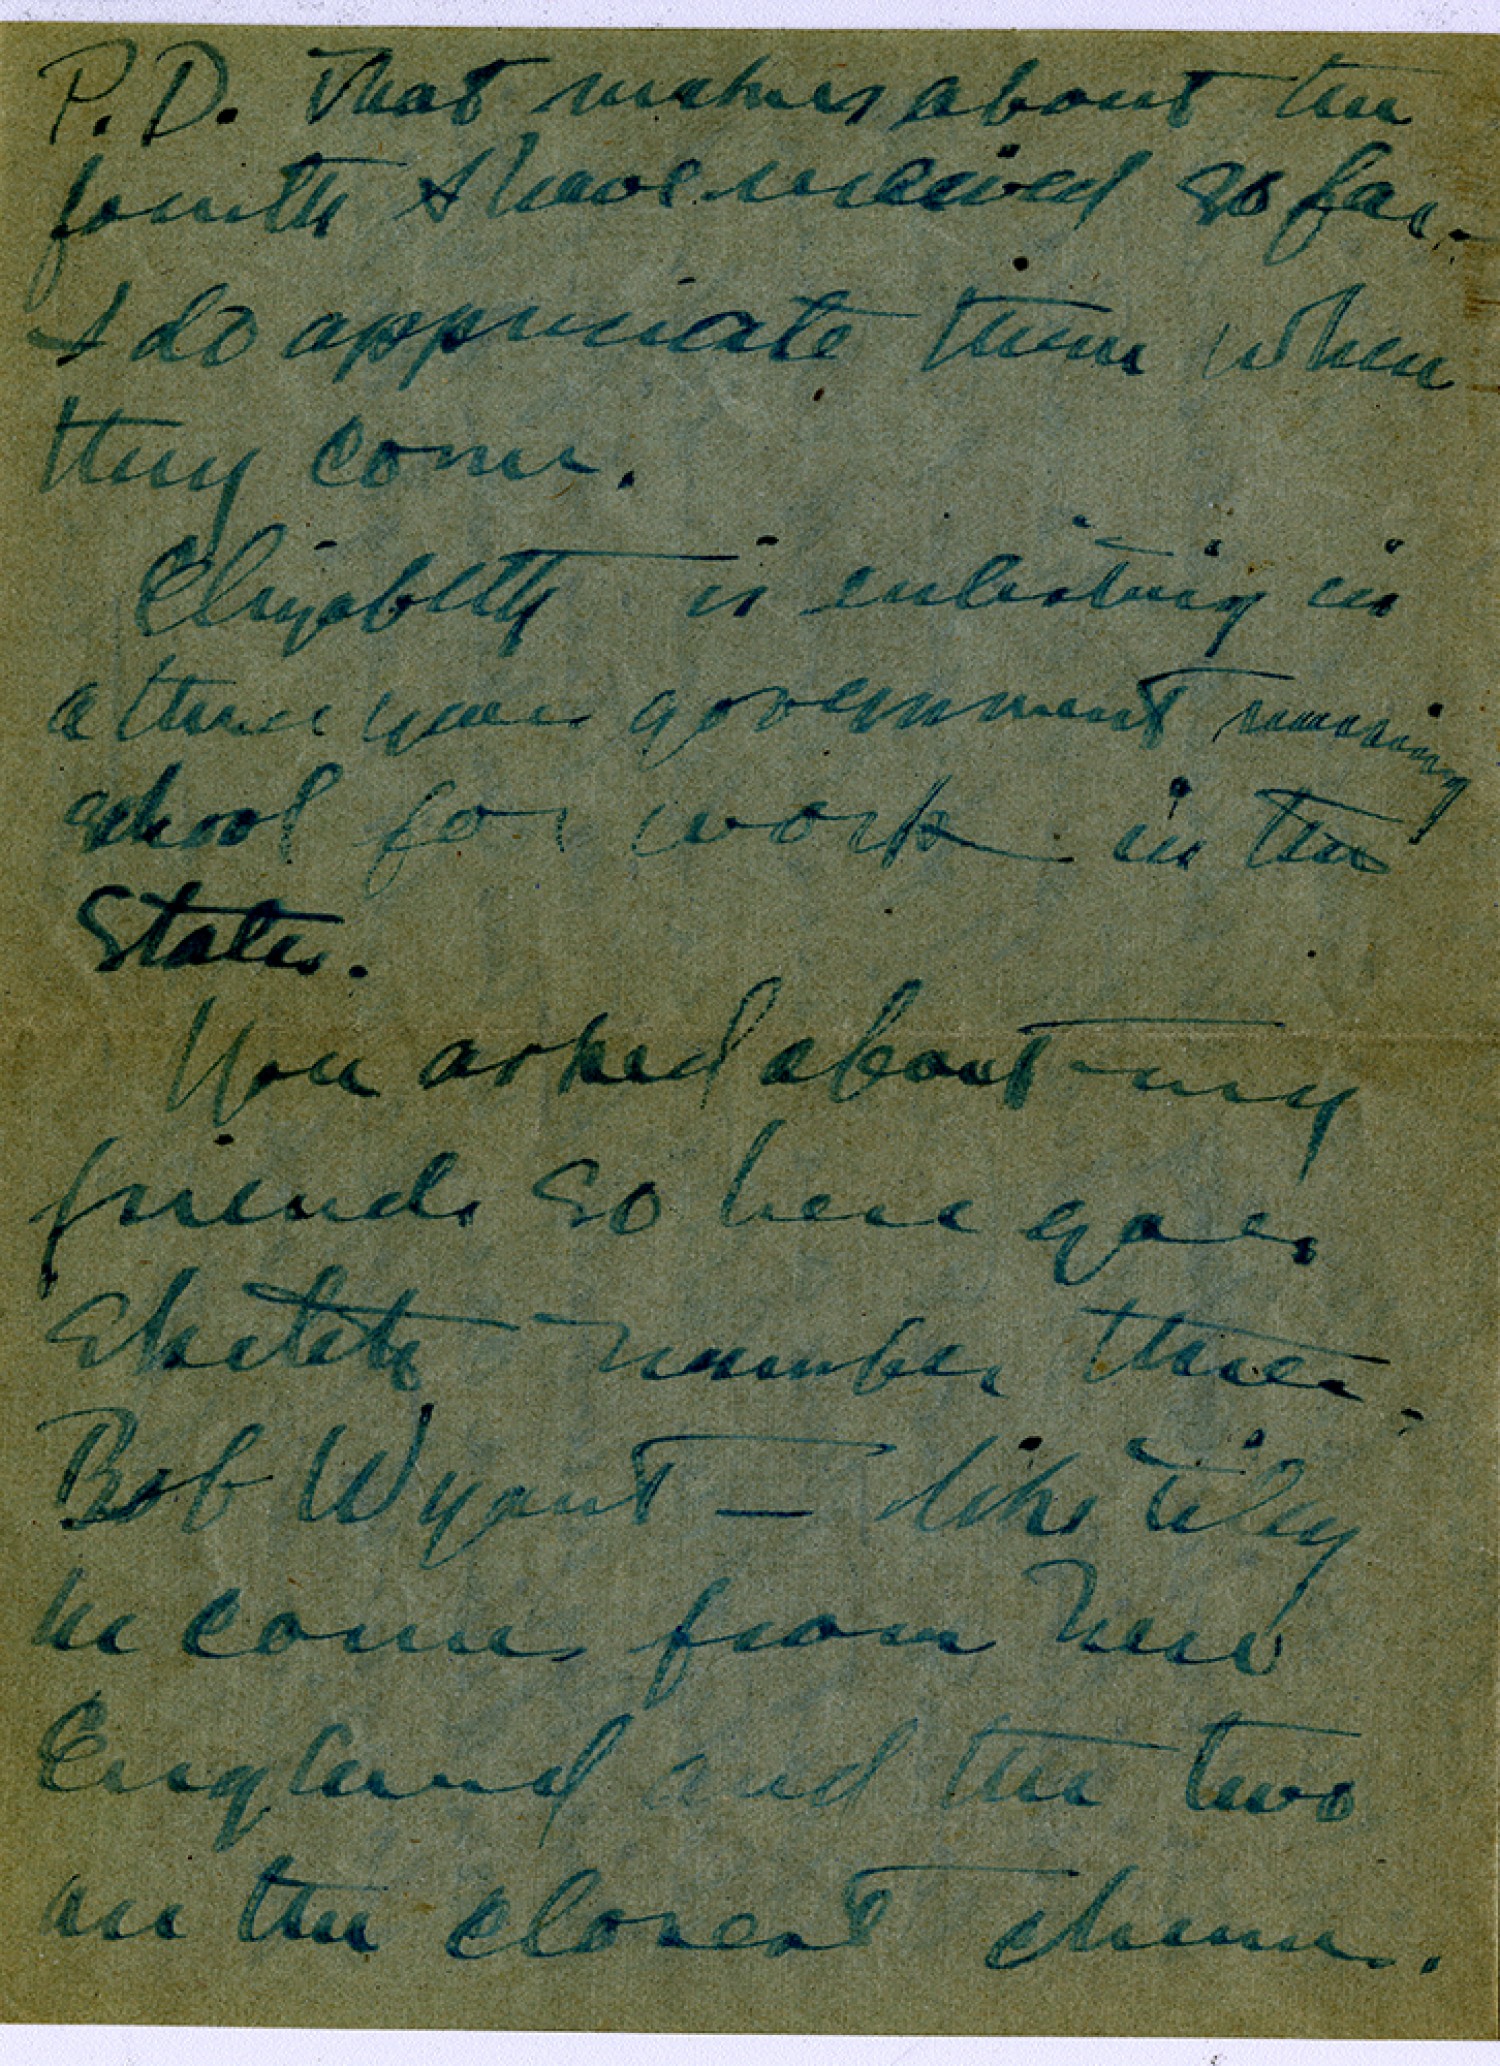 P.D. That makes about the
fourth I have received so far.
I do appreciate them when
they come.
Elizabeth is enlisting in
a three year government
school for work in the
States.
You asked about my
friends so here goes
Sketch number three.
Bob Wyant — like Tily
he comes from New
England and the two
are the closest chums.